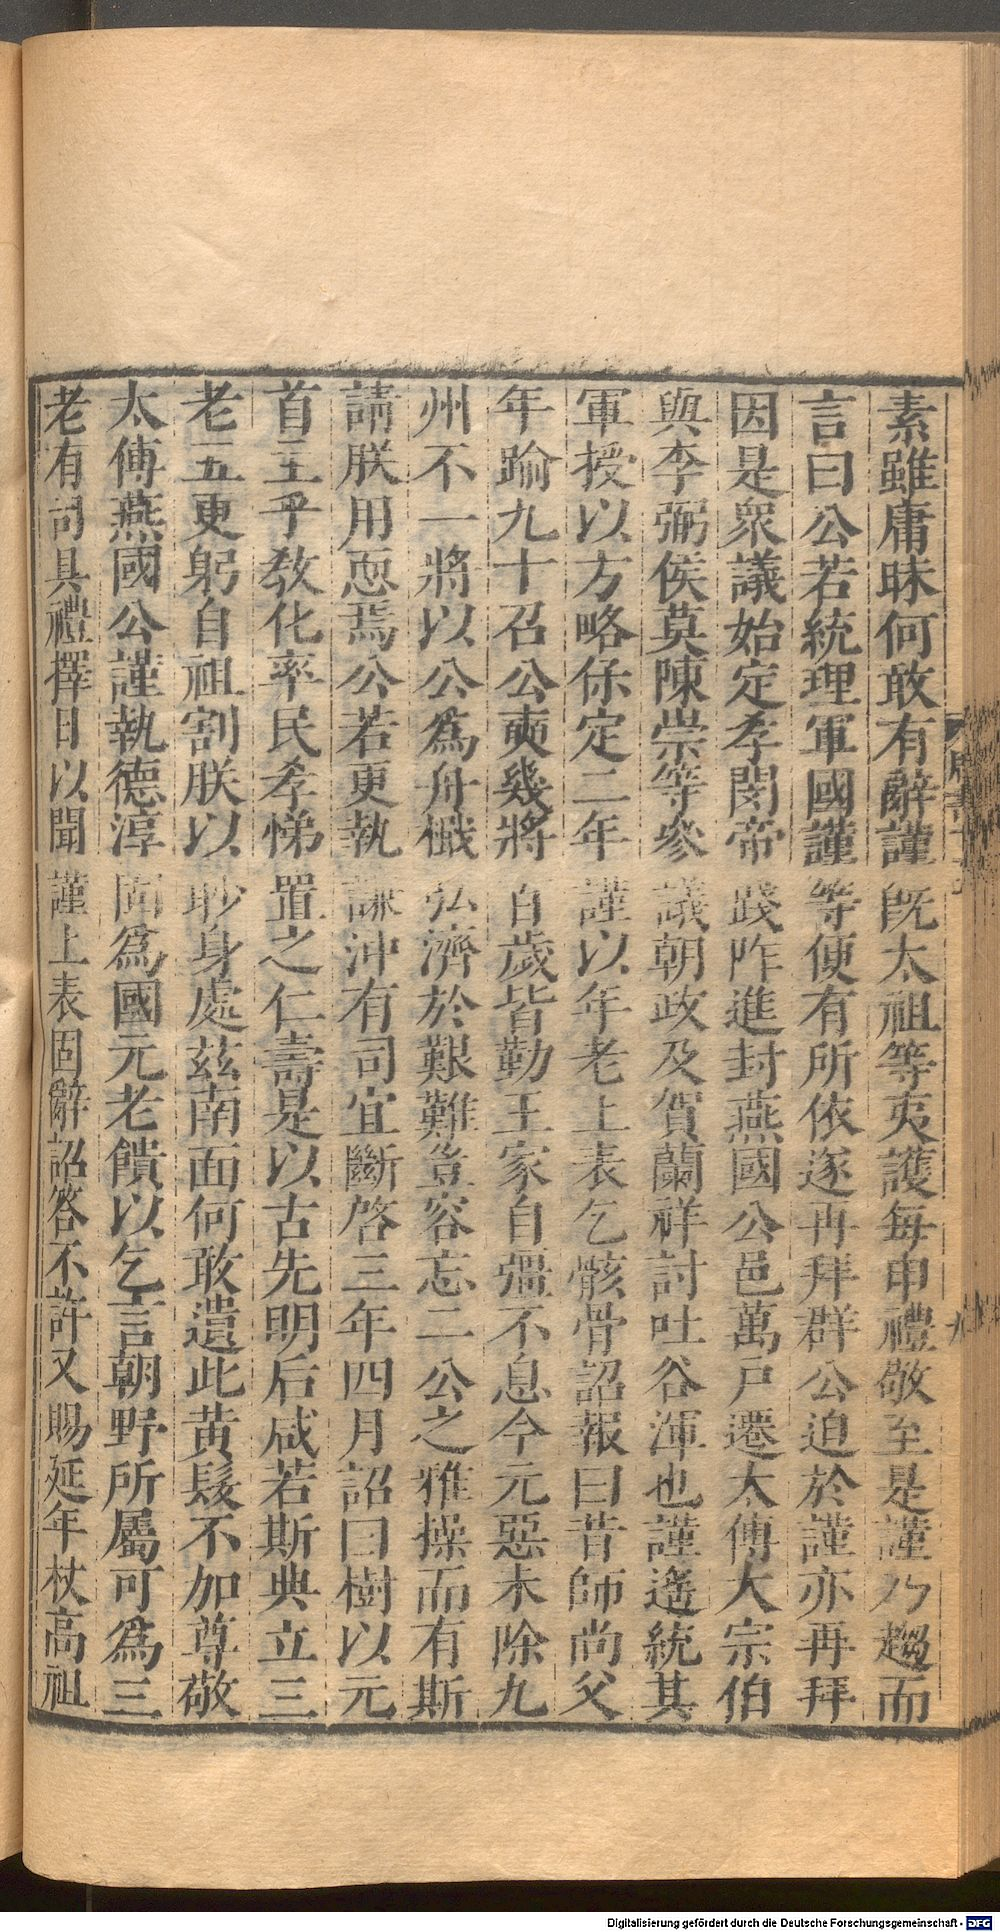 素雖庸昧何敢有辭謹既太祖等夷護每申禮敬至是謹乃趨而
言曰公若統理軍國謹等便有所依遂再拜群公迫於謹亦再拜
因是衆議始定孝閔帝踐阼進封燕國公邑萬戸遷太傅大宗伯
與李弼侯莫陳崇等參議朝政及賀蘭祥討吐谷渾也謹遙統其
軍授以方略保定二年謹以年老上表乞骸骨詔報曰昔師尚父
年踰九十召公奭幾將百歲皆勤王家自彊不息今元惡未除九
州不一將以公爲舟檝弘濟於艱難豈容忘二公之雅操而有斯
請朕用恧焉公若更執謙沖有司宜斷啓三年四月詔曰樹以元
首主乎敎化率民孝悌置之仁壽是以古先明后咸若斯典立三
老五更躬自袒割朕以眇身處茲南面何敢遺此黄髮不加尊敬
太傅燕國公謹執德淳固爲國元老饋以乞言朝野所屬可爲三
老有司具禮擇日以聞謹上表固辭詔答不許又賜延年杖高祖
九
Digitalisierung gefördert durch die Deutsche Forschungsgemeinschaft - DFG